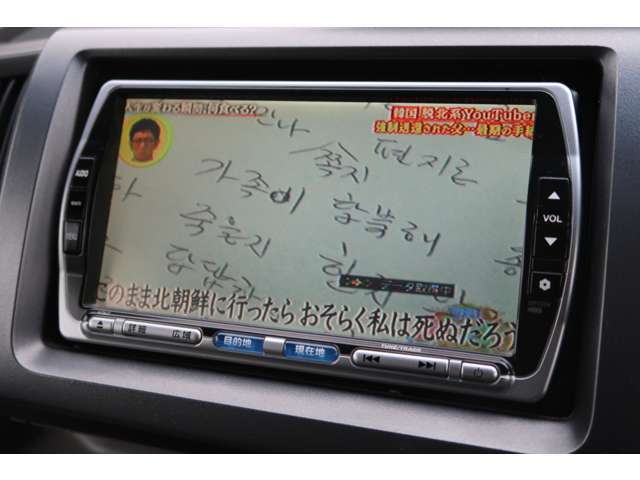 人生が変わる瞬間、何食べる?
韓国 脱北系YouTuber
強制送還された父…最期の手紙
만나
쪽지
편지로
가족이 함북에
하
죽은지
답답
한
データ取得中
このまま北朝鮮に行ったら おそらく私は死ぬだろう
AUDIO
VOL
詳細
広域
目的地
現在地
TUNE/TRACK